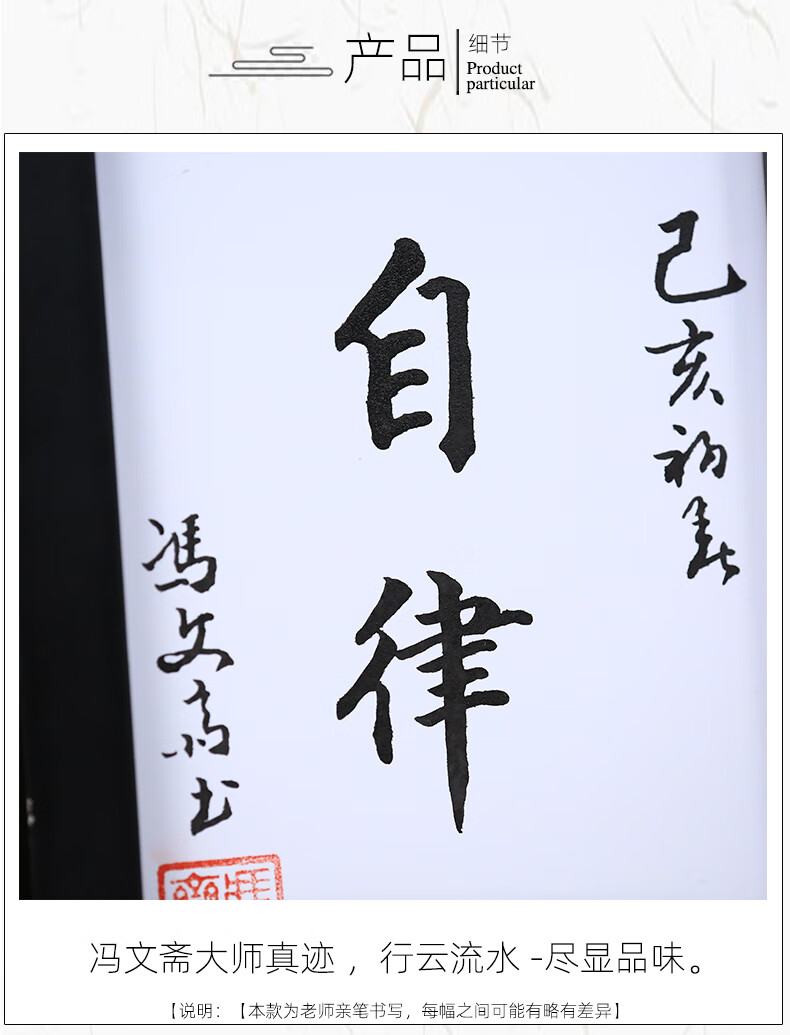 产品
细节
Product
particular
己亥初春
自律
馮文斋书
冯文斋大师真迹，行云流水 -尽显品味。
【说明：【本款为老师亲笔书写，每幅之间可能有略有差异】